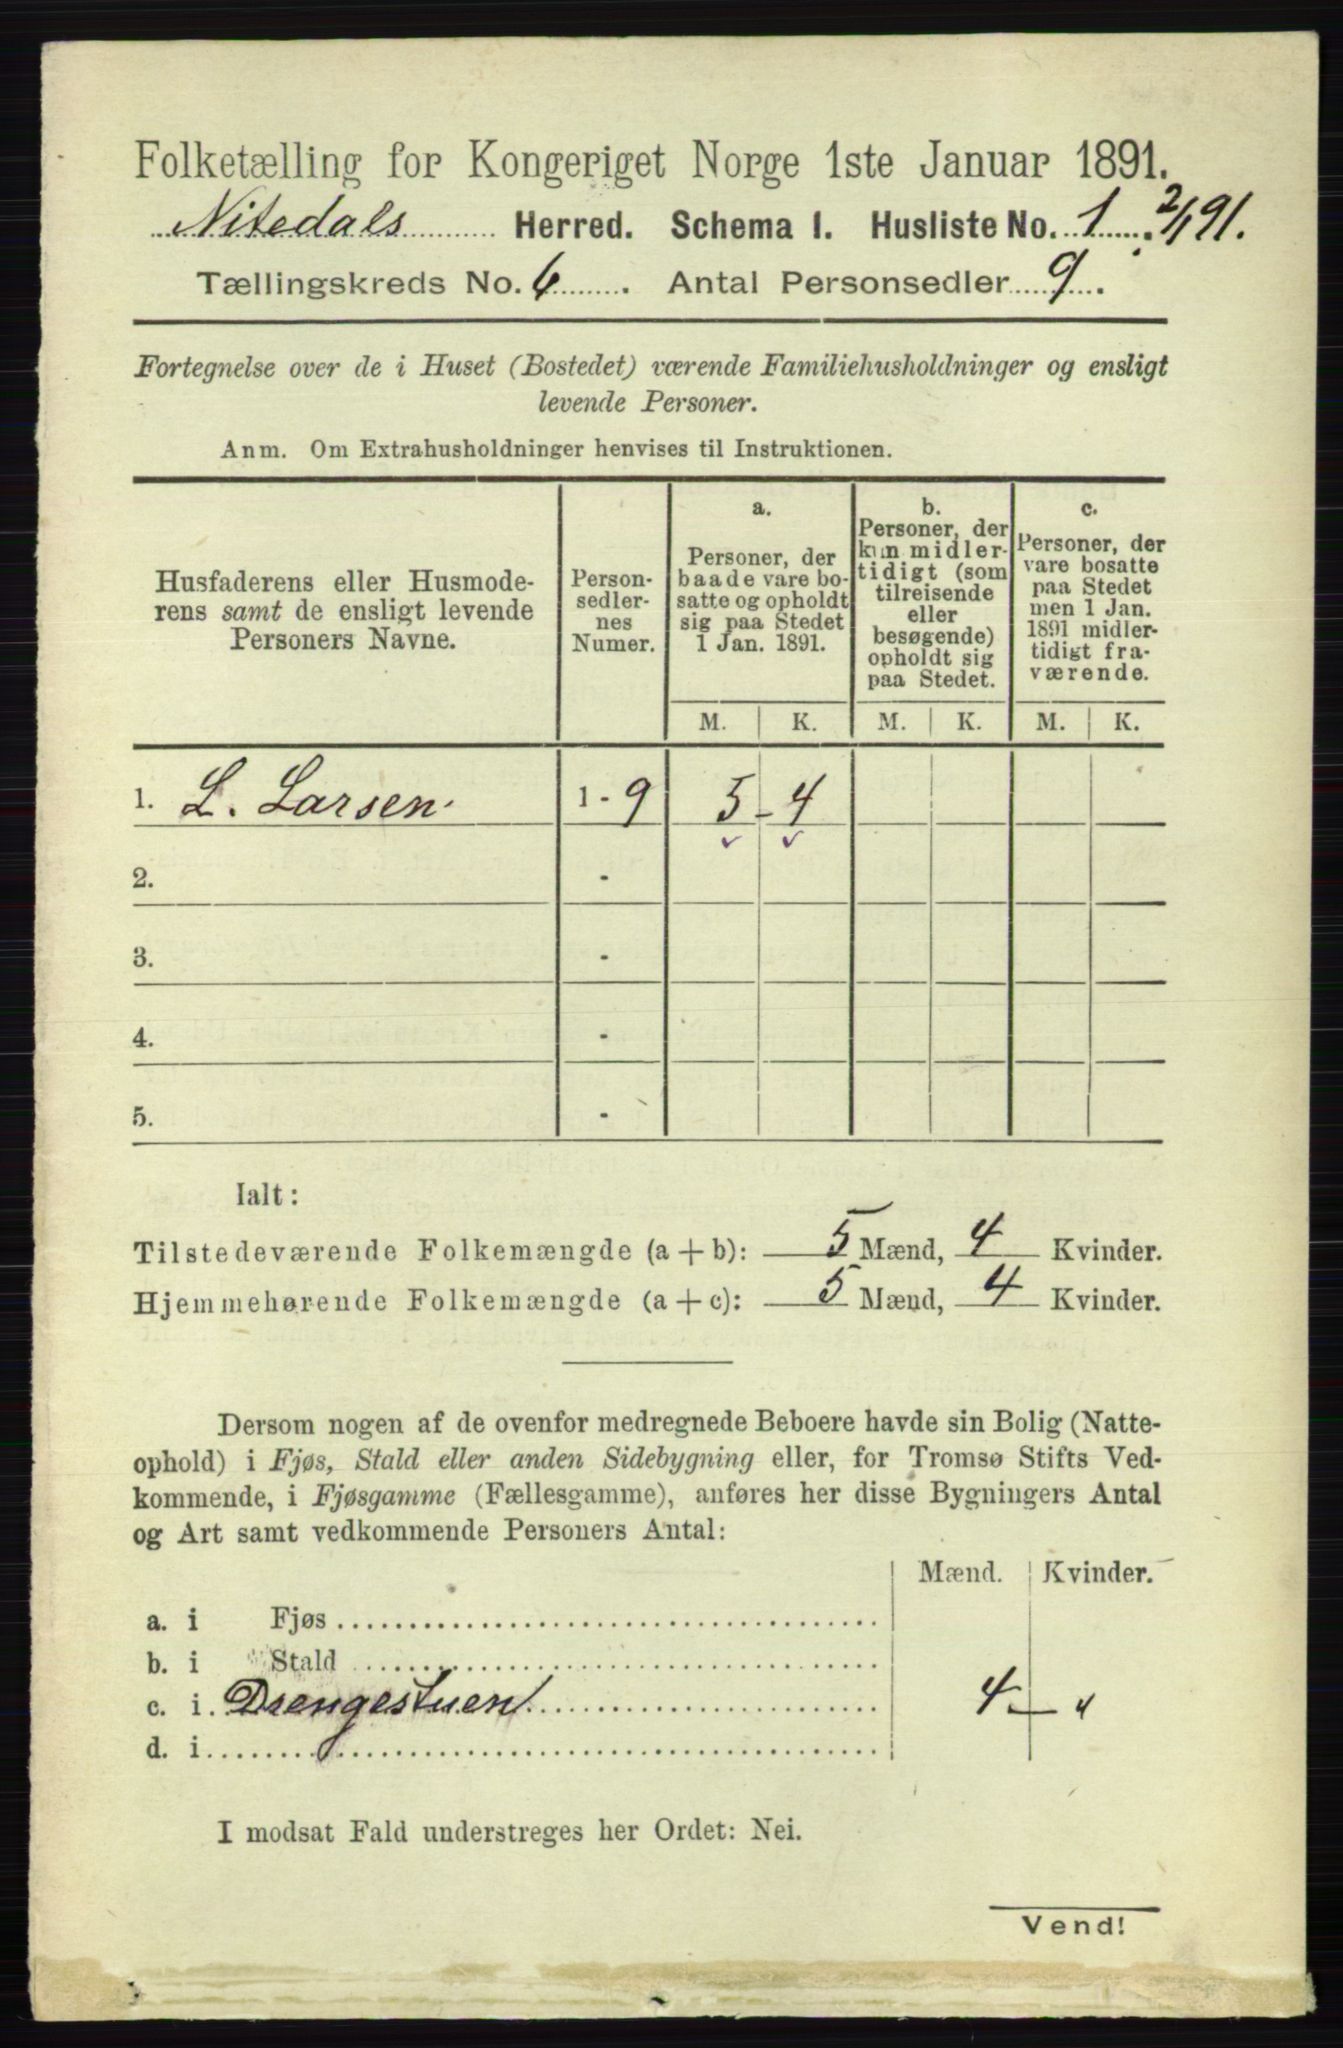 Folketælling for Kongeriget Norge 1ste Januar 1891.
Nitedals Herred. Schema I. Husliste No. 1. 2/1 91.
Tællingskreds No. 6. Antal Personsedler 9.
Fortegnelse over de i Huset (Bostedet) værende Familiehusholdninger og ensligt
levende Personer.
Anm. Om Extrahusholdninger henvises til Instruktionen.
Husfaderens eller Husmode-
rens samt de ensligt levende
Personers Navne.
Person-
sedler-
nes
Numer.
a.
Personer, der
baade vare bo-
satte og opholdt
sig paa Stedet
1 Jan. 1891.
b.
Personer, der
kun midler-
tidigt (som
tilreisende
eller
besøgende)
opholdt sig
paa Stedet.
c.
Personer, der
vare bosatte
paa Stedet
men 1 Jan.
1891 midler-
tidigt fra-
værende.
M. K. M. K. M. K.
1. L. Larsen 1 - 9 5 - 4
2. -
3. -
4. -
5. -
Ialt:
Tilstedeværende Folkemængde (a + b): 5 Mænd, 4 Kvinder.
Hjemmehørende Folkemængde (a + c): 5 Mænd, 4 Kvinder.
Dersom nogen af de ovenfor medregnede Beboere havde sin Bolig (Natte-
ophold) i Fjøs, Stald eller anden Sidebygning eller, for Tromsø Stifts Ved-
kommende, i Fjøsgamme (Fællesgamme), anføres her disse Bygningers Antal
og Art samt vedkommende Personers Antal:
Mænd. Kvinder.
a. i Fjøs
b. i Stald
c. i Drengestuen 4 - "
d. i
I modsat Fald understreges her Ordet: Nei.
Vend!